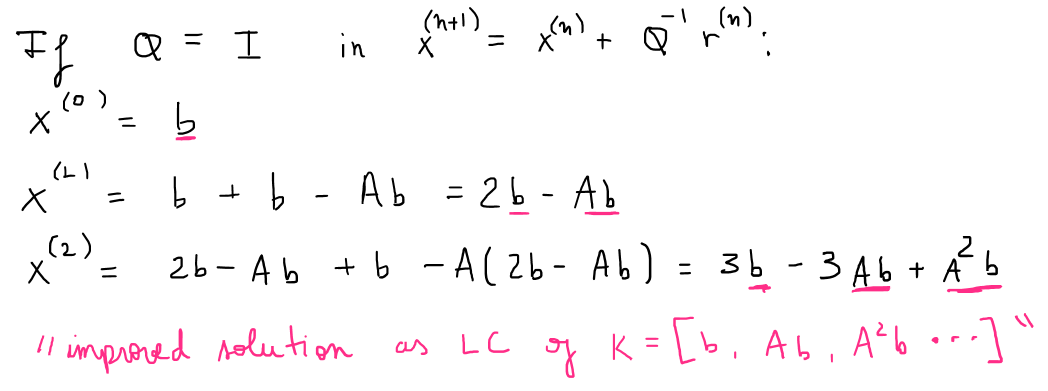 If Q = I in x^(n+1) = x^(n) + Q^-1 r^(n):
x^(0) = b
x^(1) = b + b - Ab = 2b - Ab
x^(2) = 2b - Ab + b - A(2b - Ab) = 3b - 3Ab + A^2 b
"improved solution as LC of K = [b, Ab, A^2b ...]"